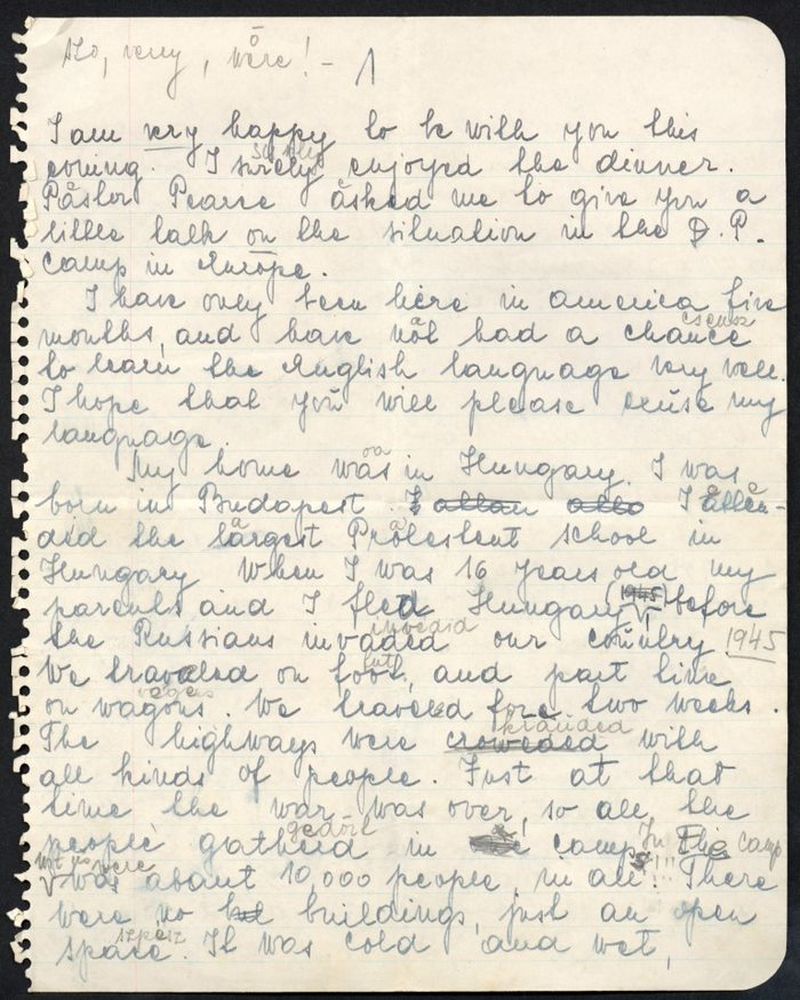 szo, very, wĕre! - 1
I am very happy to be with you this
evning. I surely enjoyed the dinner.
Påstor Pearce åsked me to give you a
little talk on the situation in the D.P.
camp in Europe.
I have only been here in america five
csensz
months, and have nåt had a chance
to learn the English language very well.
I hope that you will please exuse my
language.
oa
My home was in Hungary. I was
born in Budapest. I åtten-
ded the lårgest Pråtestent school in
Hungary When I was 16 years old my
parents and I fled Hungary (1945) before
invedid
the Russians invaded our country 1945
futt
We traveled on foot, and part time
vegens
on wagons. We traveled fore two weeks.
kraudid
The highways were crowded with
all kinds of people. Just at that
time the war was over, so all the
gedöd
people gatherd in camps!!! In The camp
were
was about 10,000 people, in all! There
were no buildings, just an open
szpesz
space. It was cold and wet,